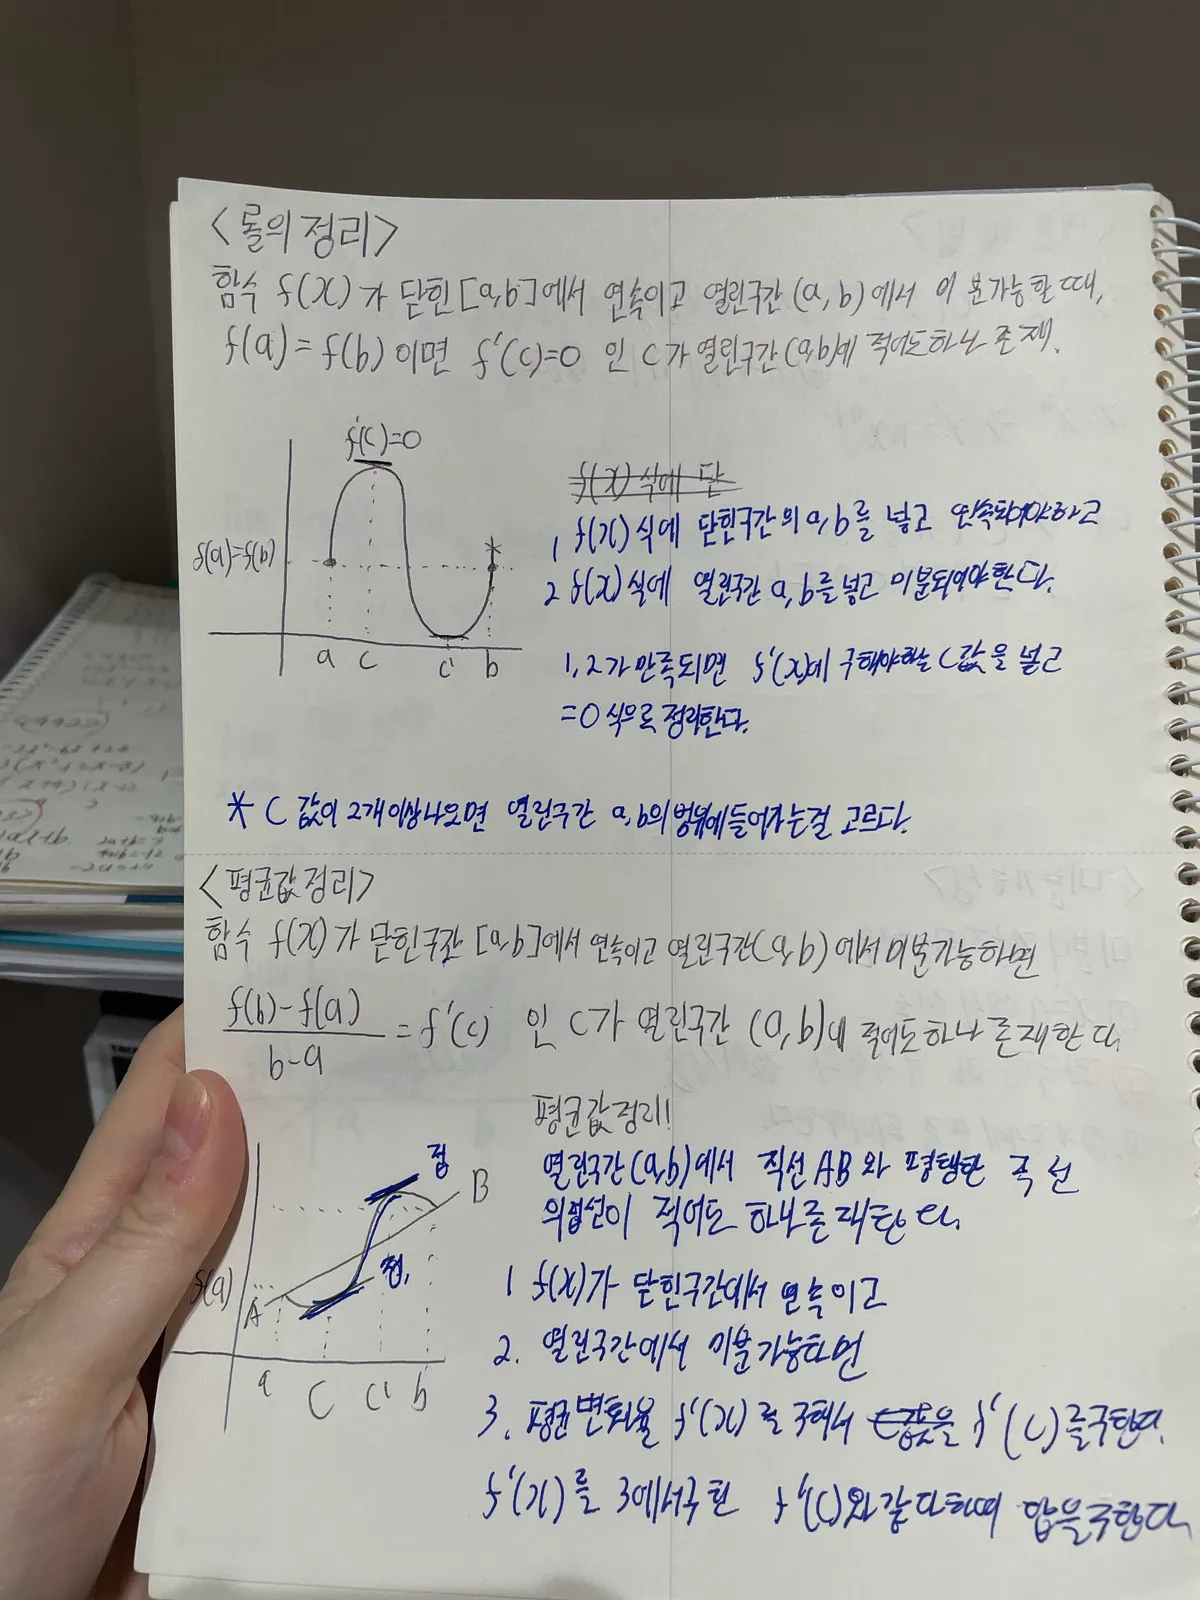 <롤의정리>
함수 f(x)가 닫힌[a,b]에서 연속이고 열린구간(a,b)에서 미분가능할때,
f(a)=f(b)이면 f'(c)=0 인 c가 열린구간(a,b)에 적어도하나 존재.
f'(c)=0
f(a)=f(b)
a c c' b
f(x)식에 닫
1, f(x)식에 닫힌구간의 a,b를 넣고 연속되어야하고
2 f(x)식에 열린구간 a,b를넣고 미분되어야한다.
1,2가만족되면 f'(x)에 구해야하는 C값을 넣고
=0 식으로 정리한다.
* C 값이 2개이상나오면 열린구간 a,b의범위에들어가는걸 고르다.
<평균값정리>
함수 f(x)가 닫힌구간 [a,b]에서 연속이고 열린구간(a,b)에서미분가능하면
f(b)-f(a)
b-a
=f'(c) 인 C가 열린구간 (a,b)에 적어도하나 존재한다.
평균값정리!
열린구간(a,b)에서 직선AB와 평행한 곡선
적어도 하나존재한다.
접
B
접.
f(a)
A
a C C' b
1 f(x)가 닫힌구간에서 연속이고
2. 열린구간에서 미분가능하면
3. 평균변화율 f'(x)를 구해서 f'(c)를구한다.
f'(x)를 3에서구한 f'(c)와같다하며 답을구한다.